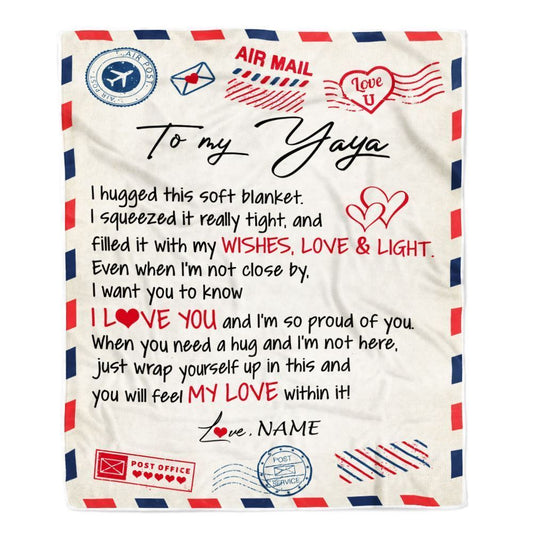 AIR POST
AIR POST
AIR MAIL
Love
U
To my Yaya
I hugged this soft blanket.
I squeezed it really tight, and
filled it with my WISHES, LOVE & LIGHT.
Even when I'm not close by,
I want you to know
I LOVE YOU and I'm so proud of you.
When you need a hug and I'm not here,
just wrap yourself up in this and
you will feel MY LOVE within it!
Love, NAME
POST OFFICE
POST
SERVICE